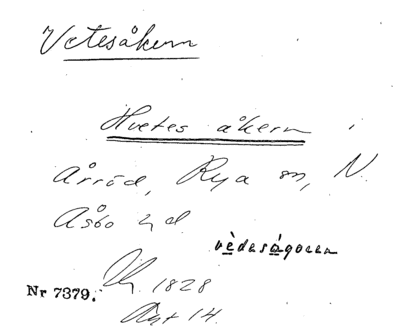 Vetesåkern
Hvetes åkern i
Årröd, Rya sn, N.
Åsbo hd
vèdesågocen
1828
Nr 7379.
Akt 14.